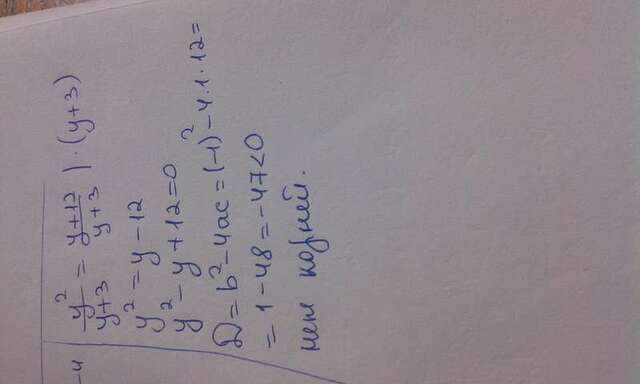 -4
y²/(y+3) = (y+12)/(y+3) | · (y+3)
y² = y - 12
y² - y + 12 = 0
D = b² - 4ac = (-1)² - 4·1·12 =
= 1 - 48 = -47 < 0
нет корней.